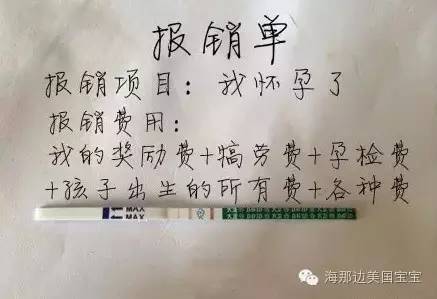 报销单
报销项目：我怀孕了
报销费用：
我的奖励费+犒劳费+孕检费
+孩子出生的所有费+各种费
MAX
MAX
海那边美国宝宝